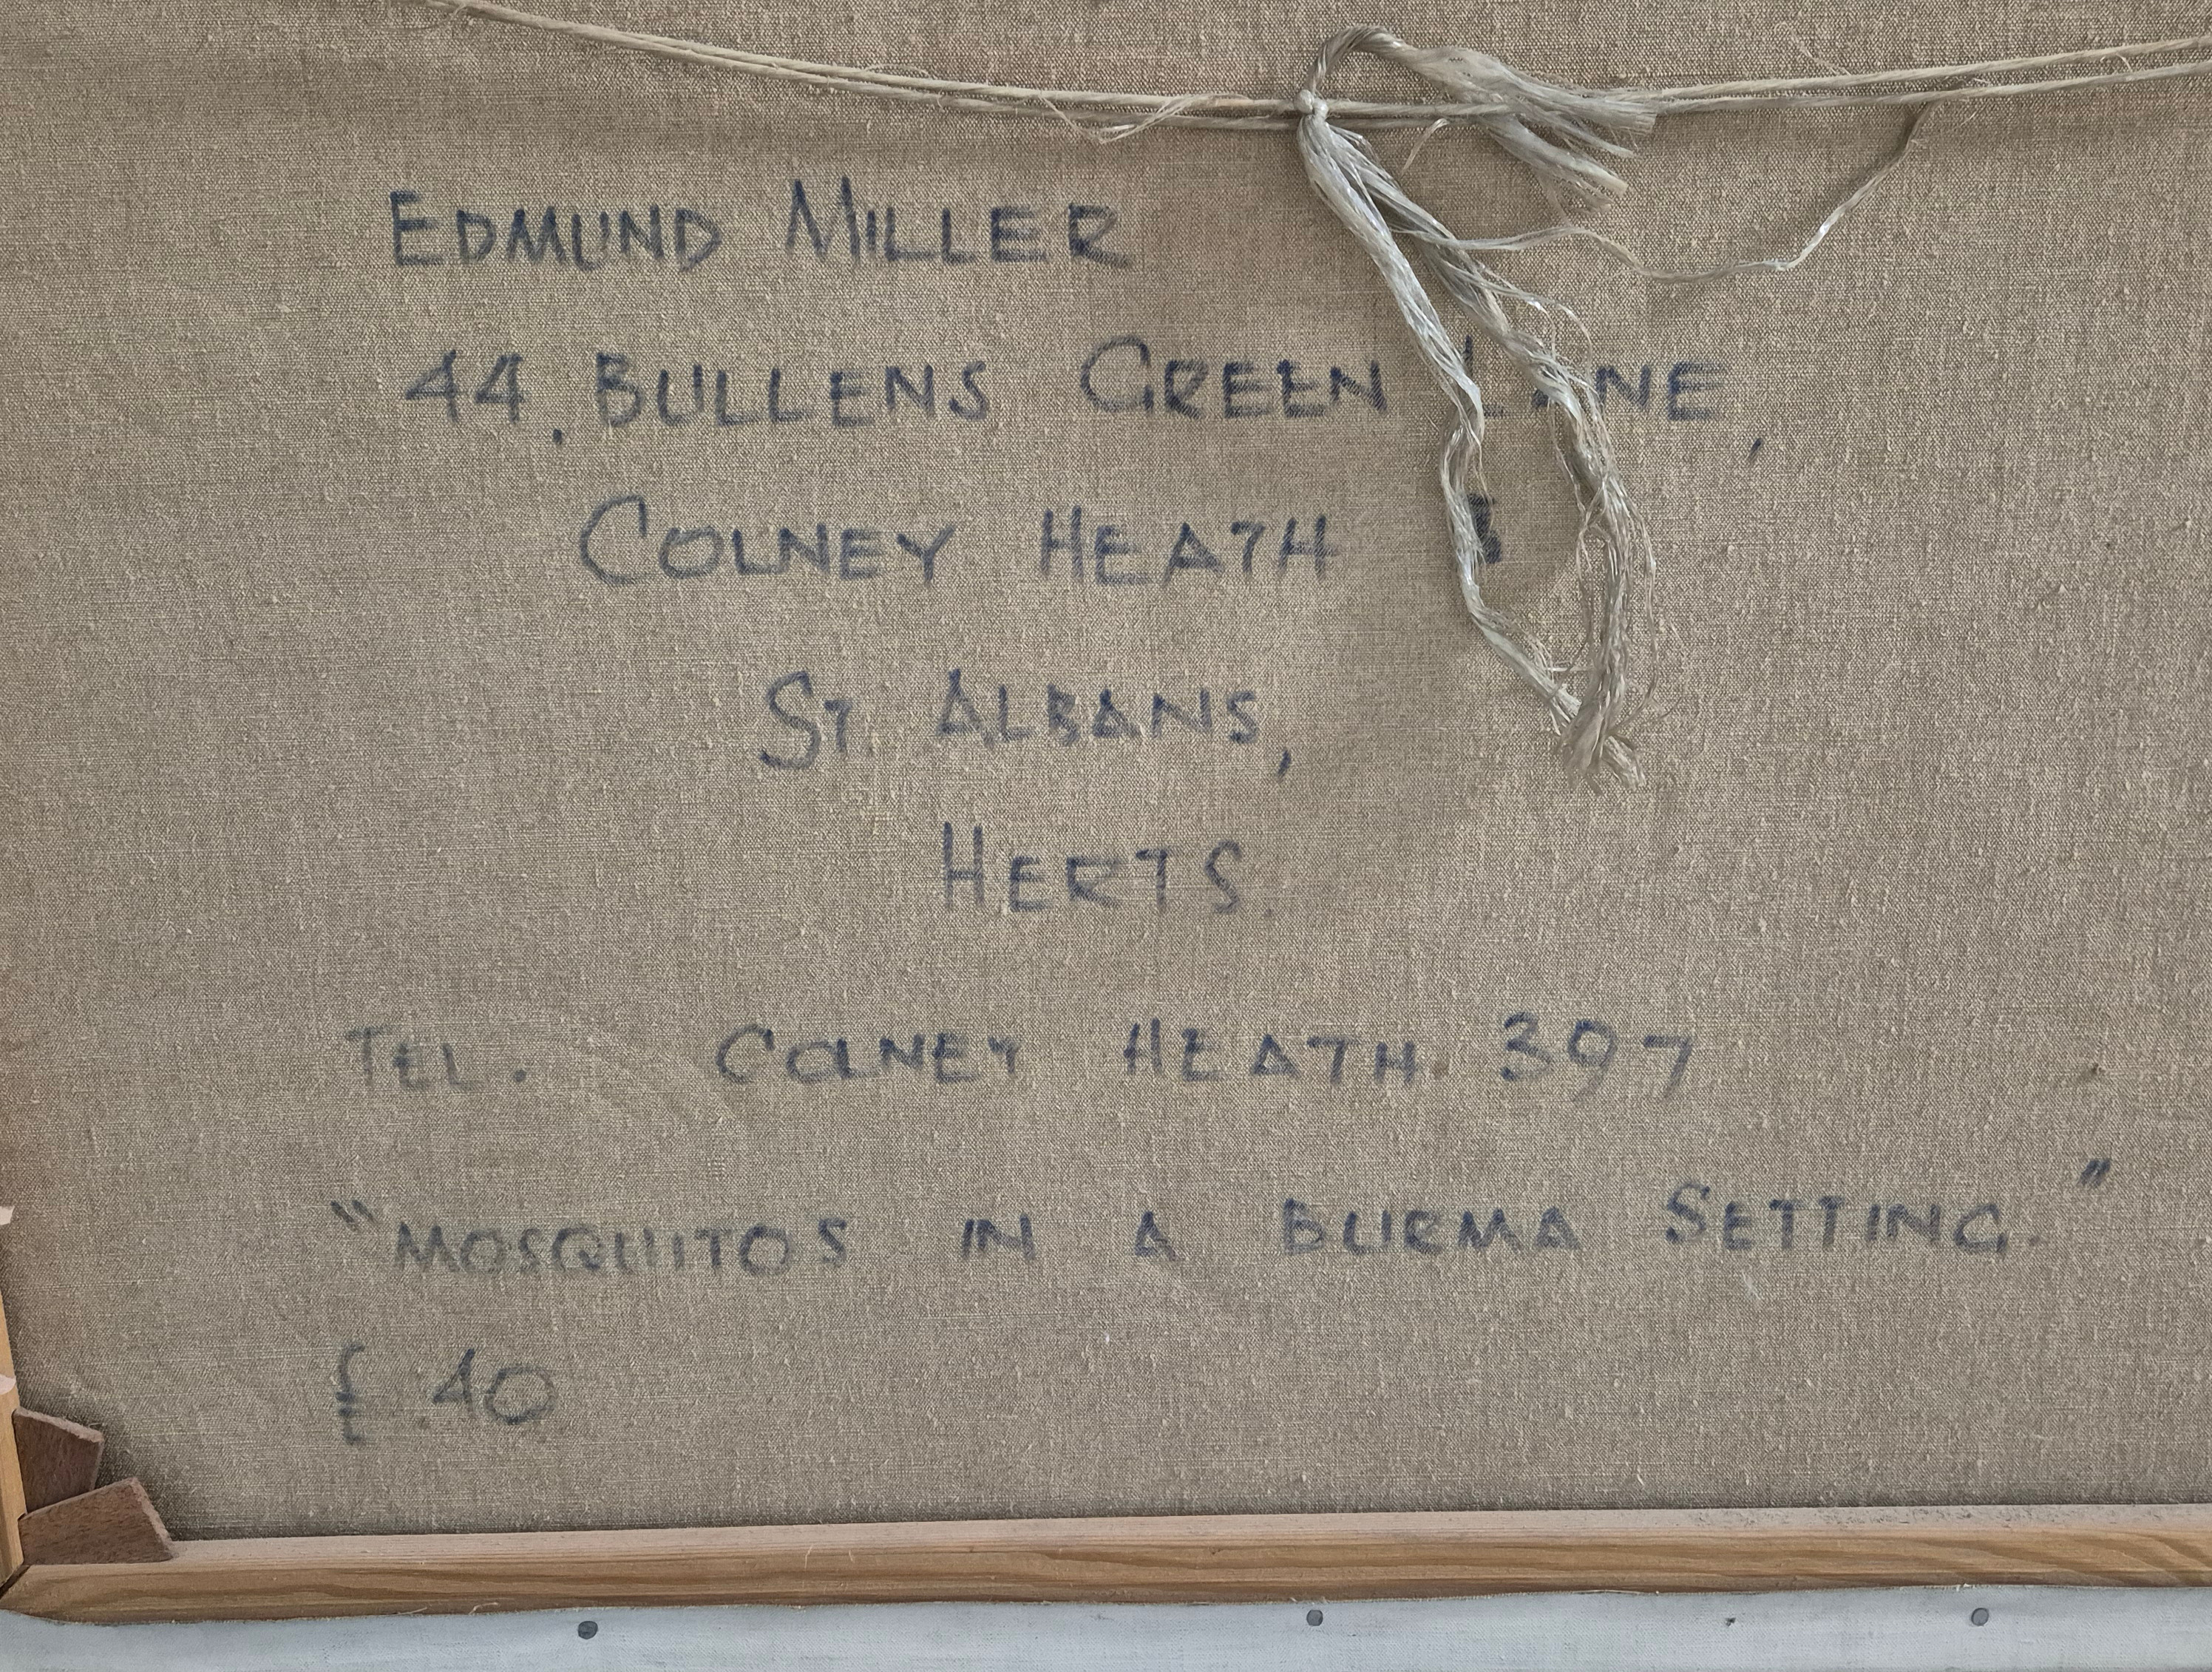 EDMUND MILLER
44, BULLENS GREEN LANE,
COLNEY HEATH
ST ALBANS,
HERTS.
TEL. COLNEY HEATH 397
"MOSQUITOS IN A BURMA SETTING."
£40